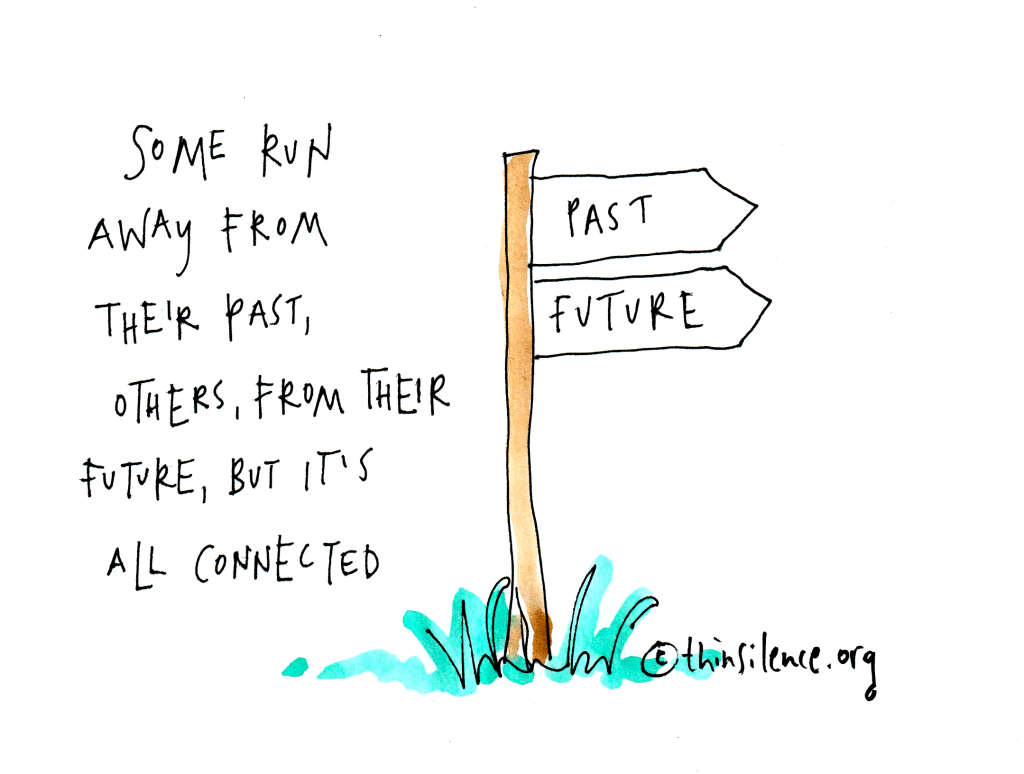 SOME RUN
AWAY FROM
THEIR PAST,
OTHERS, FROM THEIR
FUTURE, BUT IT'S
ALL CONNECTED
PAST
FUTURE
Ⓔthinsilence.org